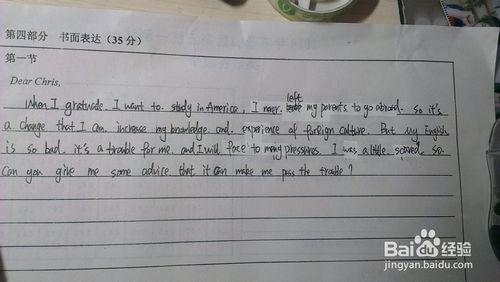 第四部分 书面表达（35分）
第一节
Dear Chris,
When I gratuade, I want to study in America, I never left my parents to go abroad. So it's
a change that I can increase my knowledge and experience of foreign culture. But my English
is so bad. it's a trouble for me. and I will face to many pressures. I was a little scared. so
Can you give me some advice that it can make me pass the trouble?
Baidu经验
jingyan.baidu.com